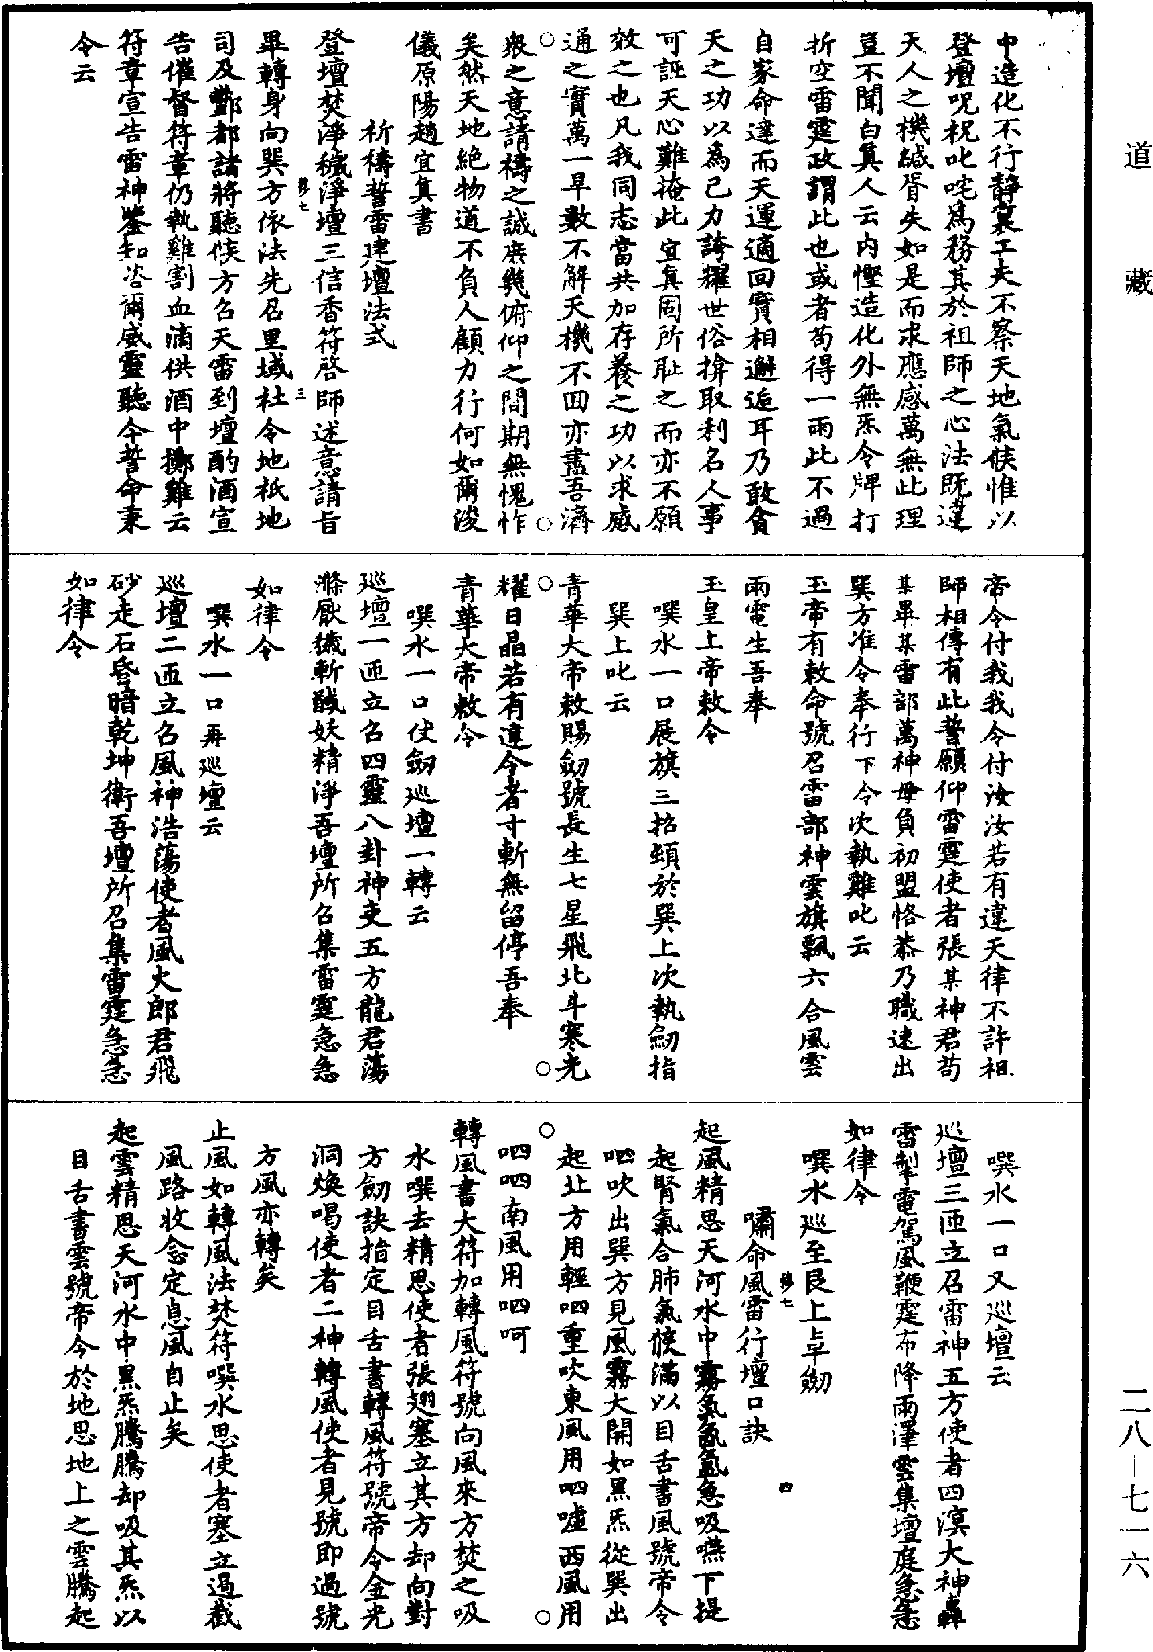 道藏
中造化不行靜裏工夫不察天地氣候惟以
登壇呪祝叱咤爲務其於祖師之心法既違
天人之機緘胥失如是而求應感萬無此理
豈不聞白真人云内慳造化外無炁令牌打
折空雷霆政謂此也或者苟得一雨此不過
自家命達而天運適回實相邂逅耳乃敢貪
天之功以爲己力誇耀世俗揜取利名人事
可誣天心難掩此宜真固所恥之而亦不願
效之也凡我同志當共加存養之功以求感
通之實萬一旱數不解天機不回亦盡吾濟
衆之意請禱之誠庶幾俯仰之間期無愧怍
矣然天地絶物道不負人顧力行何如爾浚
儀原陽趙宜真書
祈禱誓雷建壇法式
登壇焚淨穢淨壇三信香符啓師述意請旨
畢轉身向巽方依法先召里域社令地祇地
司及酆都諸將聽候方召天雷到壇酌酒宣
告催督符章仍執雞割血滴供酒中擲雞云
符章宣告雷神鑒知咨爾威靈聽令誓命秉
令云
帝令付我我令付汝汝若有違天律不許祖
師相傳有此誓願仰雷霆使者張某神君苟
某畢某雷部萬神毋負初盟恪恭乃職速出
巽方准令奉行下令次執雞叱云
玉帝有敕命號召雷部神雲旗飄六合風雲
雨電生吾奉
玉皇上帝敕令
噀水一口展旗三招頞於巽上次執劒指
巽上叱云
青華大帝敕賜劒號長生七星飛北斗寒光
耀日晶若有違令者寸斬無留停吾奉
青華大帝敕令
噀水一口仗劒巡壇一轉云
巡壇一匝立召四靈八卦神吏五方龍君蕩
滌厭穢斬馘妖精淨吾壇所召集雷霆急急
如律令
噀水一口再巡壇云
巡壇二匝立召風神浩蕩使者風火郎君飛
砂走石昏暗乾坤衛吾壇所召集雷霆急急
如律令
噀水一口又巡壇云
巡壇三匝立召雷神五方使者四溟大神轟
雷掣電駕風鞭霆布降雨澤雲集壇庭急急
如律令
噀水巡至艮上卓劒
嘯命風雷行壇口訣
起風精思天河水中霧氣氤氳急吸嚥下提
起腎氣合肺氣候滿以目舌書風號帝令
呬吹出巽方見風霧大開如黑炁從巽出
起北方用輕呬重吹東風用呬噓西風用
呬呬南風用呬呵
轉風書大符加轉風符號向風來方焚之吸
水噀去精思使者張翅塞立其方却向對
方劒訣指定目舌書轉風符號帝令金光
洞煥喝使者二神轉風使者見號即過號
方風亦轉矣
止風如轉風法焚符噀水思使者塞立過截
風路收念定息風自止矣
起雲精思天河水中黑炁騰騰却吸其炁以
目舌書雲號帝令於地思地上之雲騰起
二八—七一六